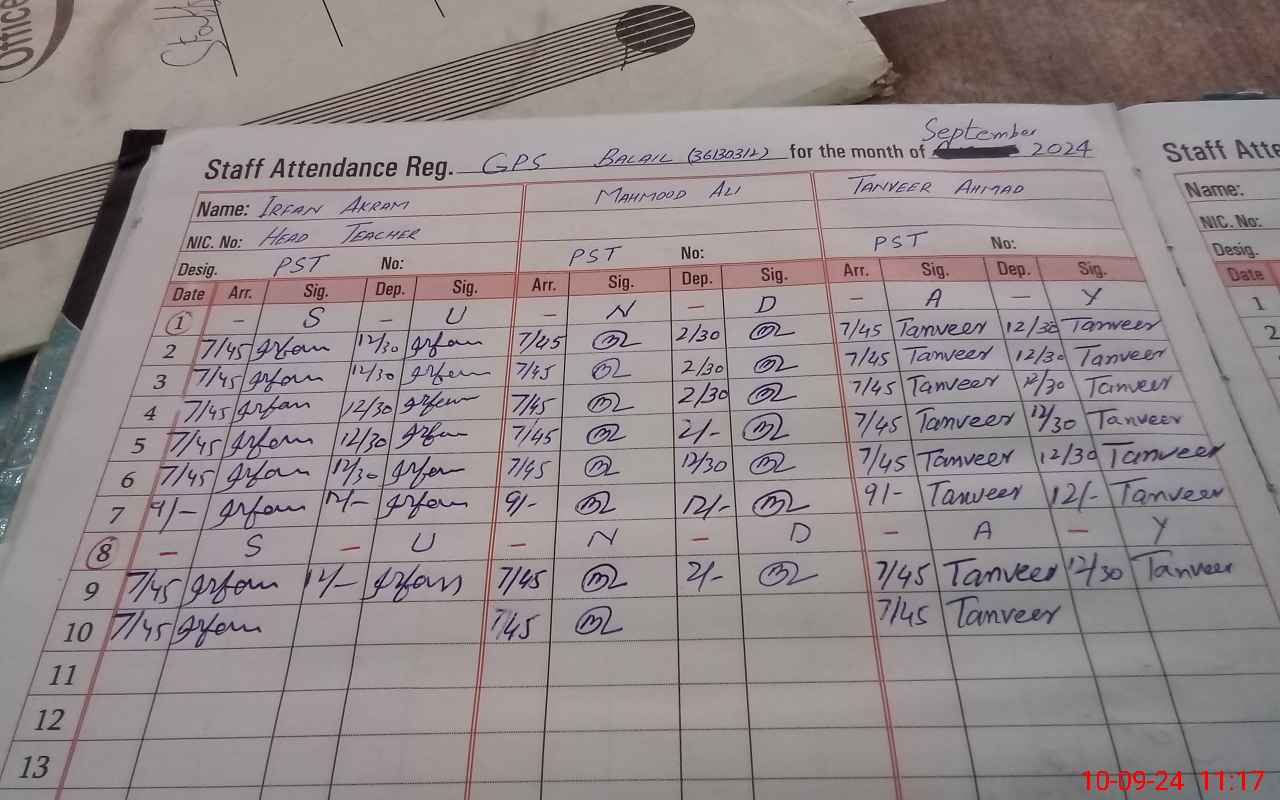 Office
Staff Attendance Reg. GPS BALAIL (36130312) for the month of September 2024
Staff Atte
Name: IRFAN AKRAM MAHMOOD ALI TANVEER AHMAD
Name:
NIC. No: HEAD TEACHER
NIC. No:
Desig. PST No: PST No: PST No:
Desig.
Date Arr. Sig. Dep. Sig. Arr. Sig. Dep. Sig. Arr. Sig. Dep. Sig.
Date
1 - S - U - N - D - A - Y
1
2 7/45 Irfan 12/30 Irfan 7/45 2/30 7/45 Tanveer 12/30 Tanveer
2
3 7/45 Irfan 12/30 Irfan 7/45 2/30 7/45 Tanveer 12/30 Tanveer
4 7/45 Irfan 12/30 Irfan 7/45 2/30 7/45 Tanveer 12/30 Tanveer
5 7/45 Irfan 12/30 Irfan 7/45 2/- 7/45 Tanveer 12/30 Tanveer
6 7/45 Irfan 12/30 Irfan 7/45 12/30 7/45 Tanveer 12/30 Tanveer
7 9/- Irfan 12/- Irfan 9/- 12/- 9/- Tanveer 12/- Tanveer
8 - S - U - N - D - A - Y
9 7/45 Irfan 12/- Irfan 7/45 2/- 7/45 Tanveer 12/30 Tanveer
10 7/45 Irfan 7/45 7/45 Tanveer
11
12
13
10-09-24 11:17